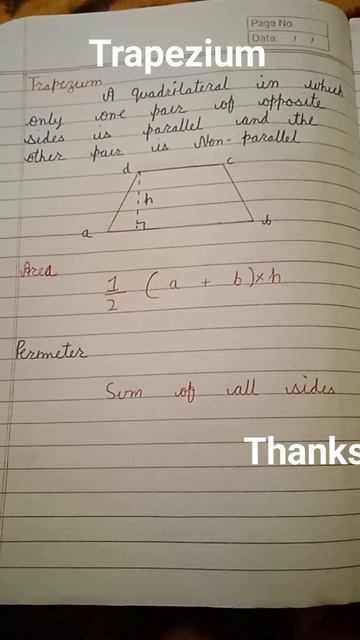 Page No.
Date: / /
Trapezium
Trapezum
A quadrilateral in which
only one pair of opposite
sides is parallel and the
other pair is Non-parallel
d c
h
a b
Area
1/2 (a + b)×h
Permeter
Sum of all sides
Thanks